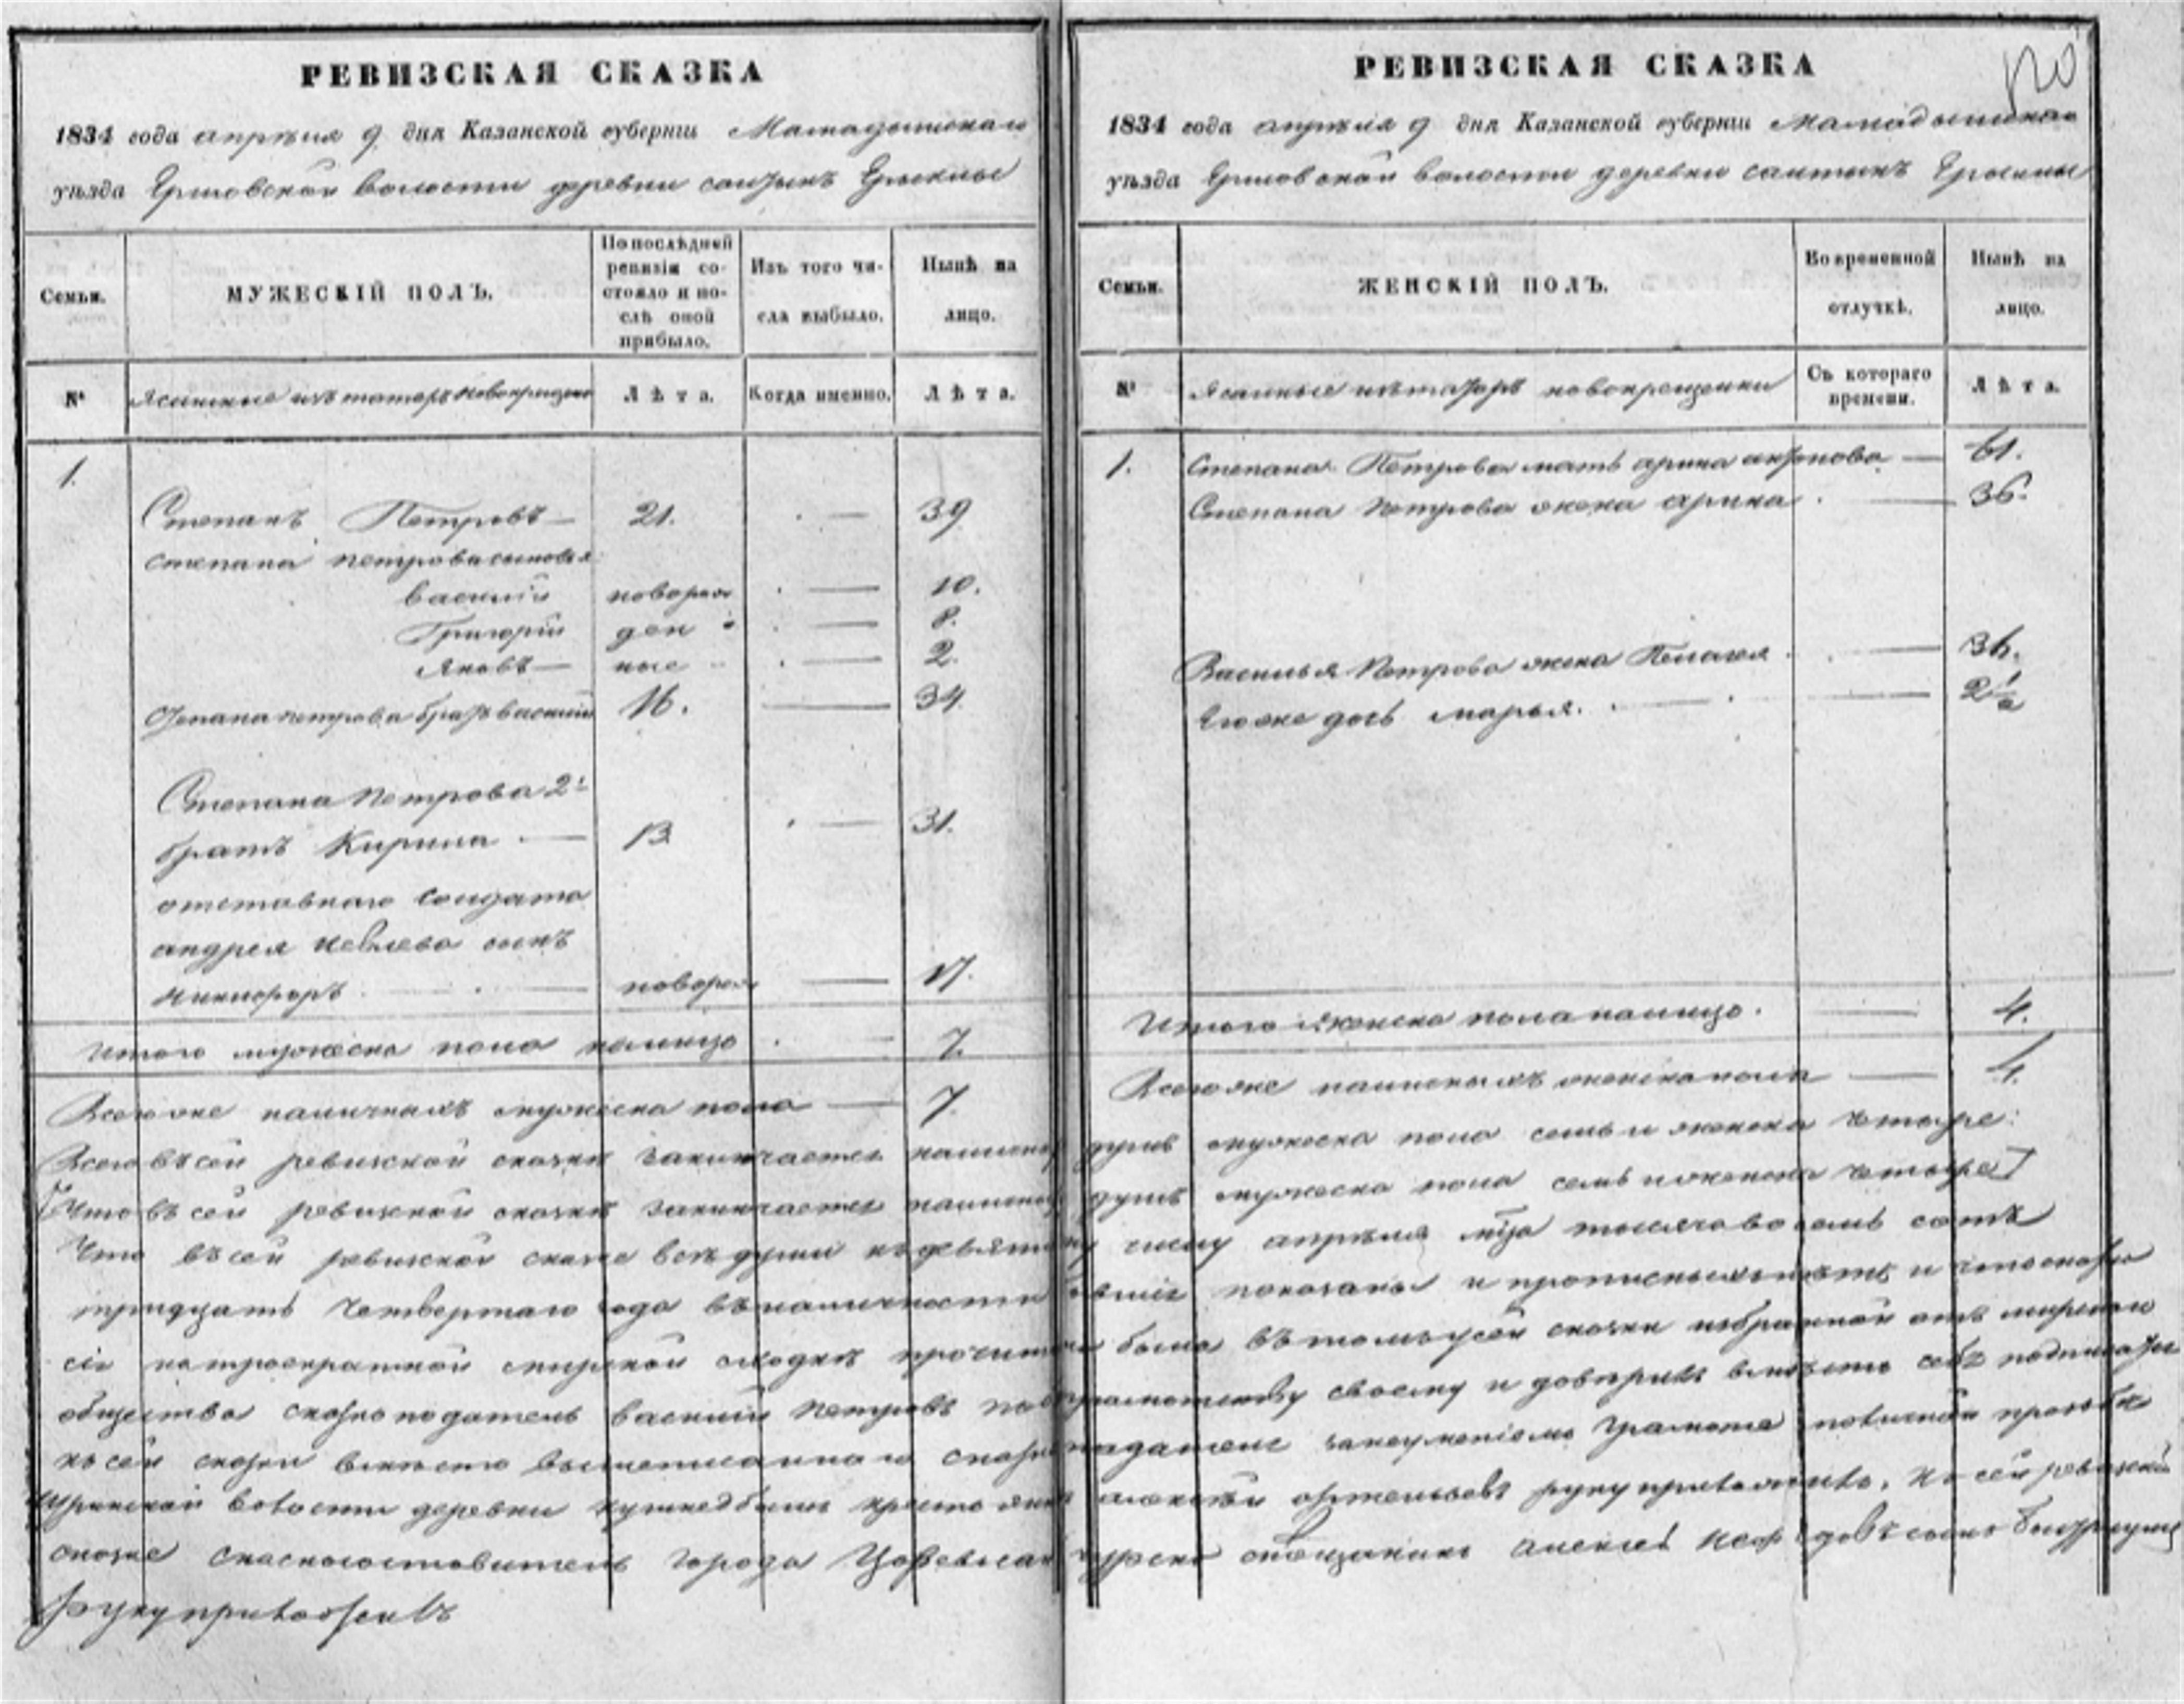 РЕВИЗСКАЯ СКАЗКА
1834 года апрѣля 9 дня Казанской губерніи Мамадышскаго
уѣзда Ершовской волости деревни
Семьи.
МУЖЕСКІЙ ПОЛЪ.
По послѣдней ревизіи состояло и послѣ оной прибыло.
Изъ того числа выбыло.
Нынѣ на лицо.
№
Ясашные изъ татаръ новокрещены
Лѣта.
Когда именно.
Лѣта.
1.
Степанъ Петровъ — 21. — 39
Степана Петрова сыновья
Василій новорож — 10.
Григорій ден — 8.
Яковъ — ные — 2.
Степана Петрова братъ Василій 16. — 34.
Степана Петрова 2й
братъ Кирила — 13 — 31.
отставнаго солдата
андрея сынъ
Никифоръ — новорож — 17.
Итого мужеска пола налицо — 7.
Всего же наличныхъ мужеска пола — 7.
РЕВИЗСКАЯ СКАЗКА
120
1834 года апрѣля 9 дня Казанской губерніи Мамадышскаго
уѣзда Ершовской волости деревни
Семьи.
ЖЕНСКІЙ ПОЛЪ.
Во временной отлучкѣ.
Нынѣ на лицо.
№
Ясашные изъ татаръ новокрещенки
Съ котораго времени.
Лѣта.
1. Степана Петрова мать арина — 61.
Степана Петрова жена арина — 36.
Василья Петрова жена Пелагея — 36.
Его же дочь марья. — 2½
Итого женска пола налицо. — 4.
Всего же наличныхъ женска пола — 4.
Всего въ сей ревизской сказкѣ заключается наличныхъ душъ мужеска пола семь и женска четыре:
Что въ сей ревизской сказкѣ заключается наличныхъ душъ мужеска пола семь и женска четыре
Что въ сей ревизской сказке всѣ души къ девятому числу апрѣля мца тысяча восемь сотъ
тридцать четвертаго года въ наличности бывшіе показаны и прописныхъ нѣтъ и что сказка
сія на троекратной мирской сходкѣ прочитана была въ томъ къ сей сказки избранной отъ мирскаго
общества сказкоподатель василий Петровъ по неграмотству своему и довѣрилъ вместо себя подписаться
къ сей сказки вместо вышеписаннаго сказкоподателя за неумѣніемъ грамоте по личной прозьбе
волости деревни алексѣй руку приложилъ. Къ сей ревизской
сказке города алексей
руку приложилъ